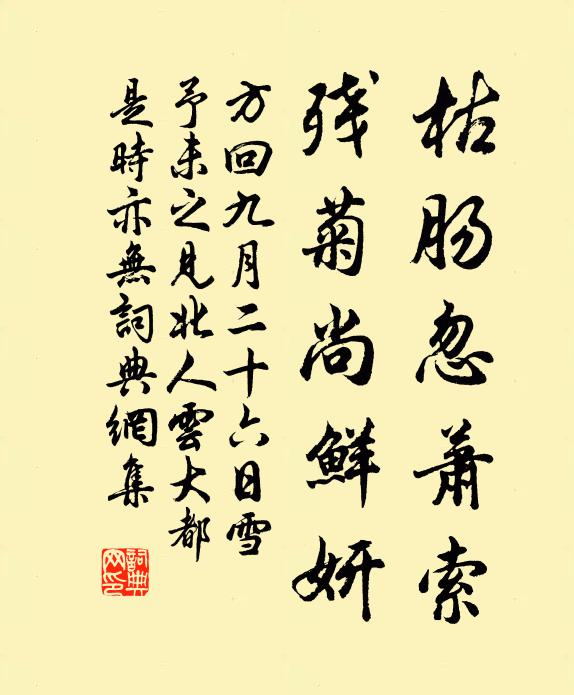 枯肠忽萧索
残菊尚鲜妍
方回九月二十六日雪
予未之见北人云大都
是時亦無詞典網集
詞典
网印